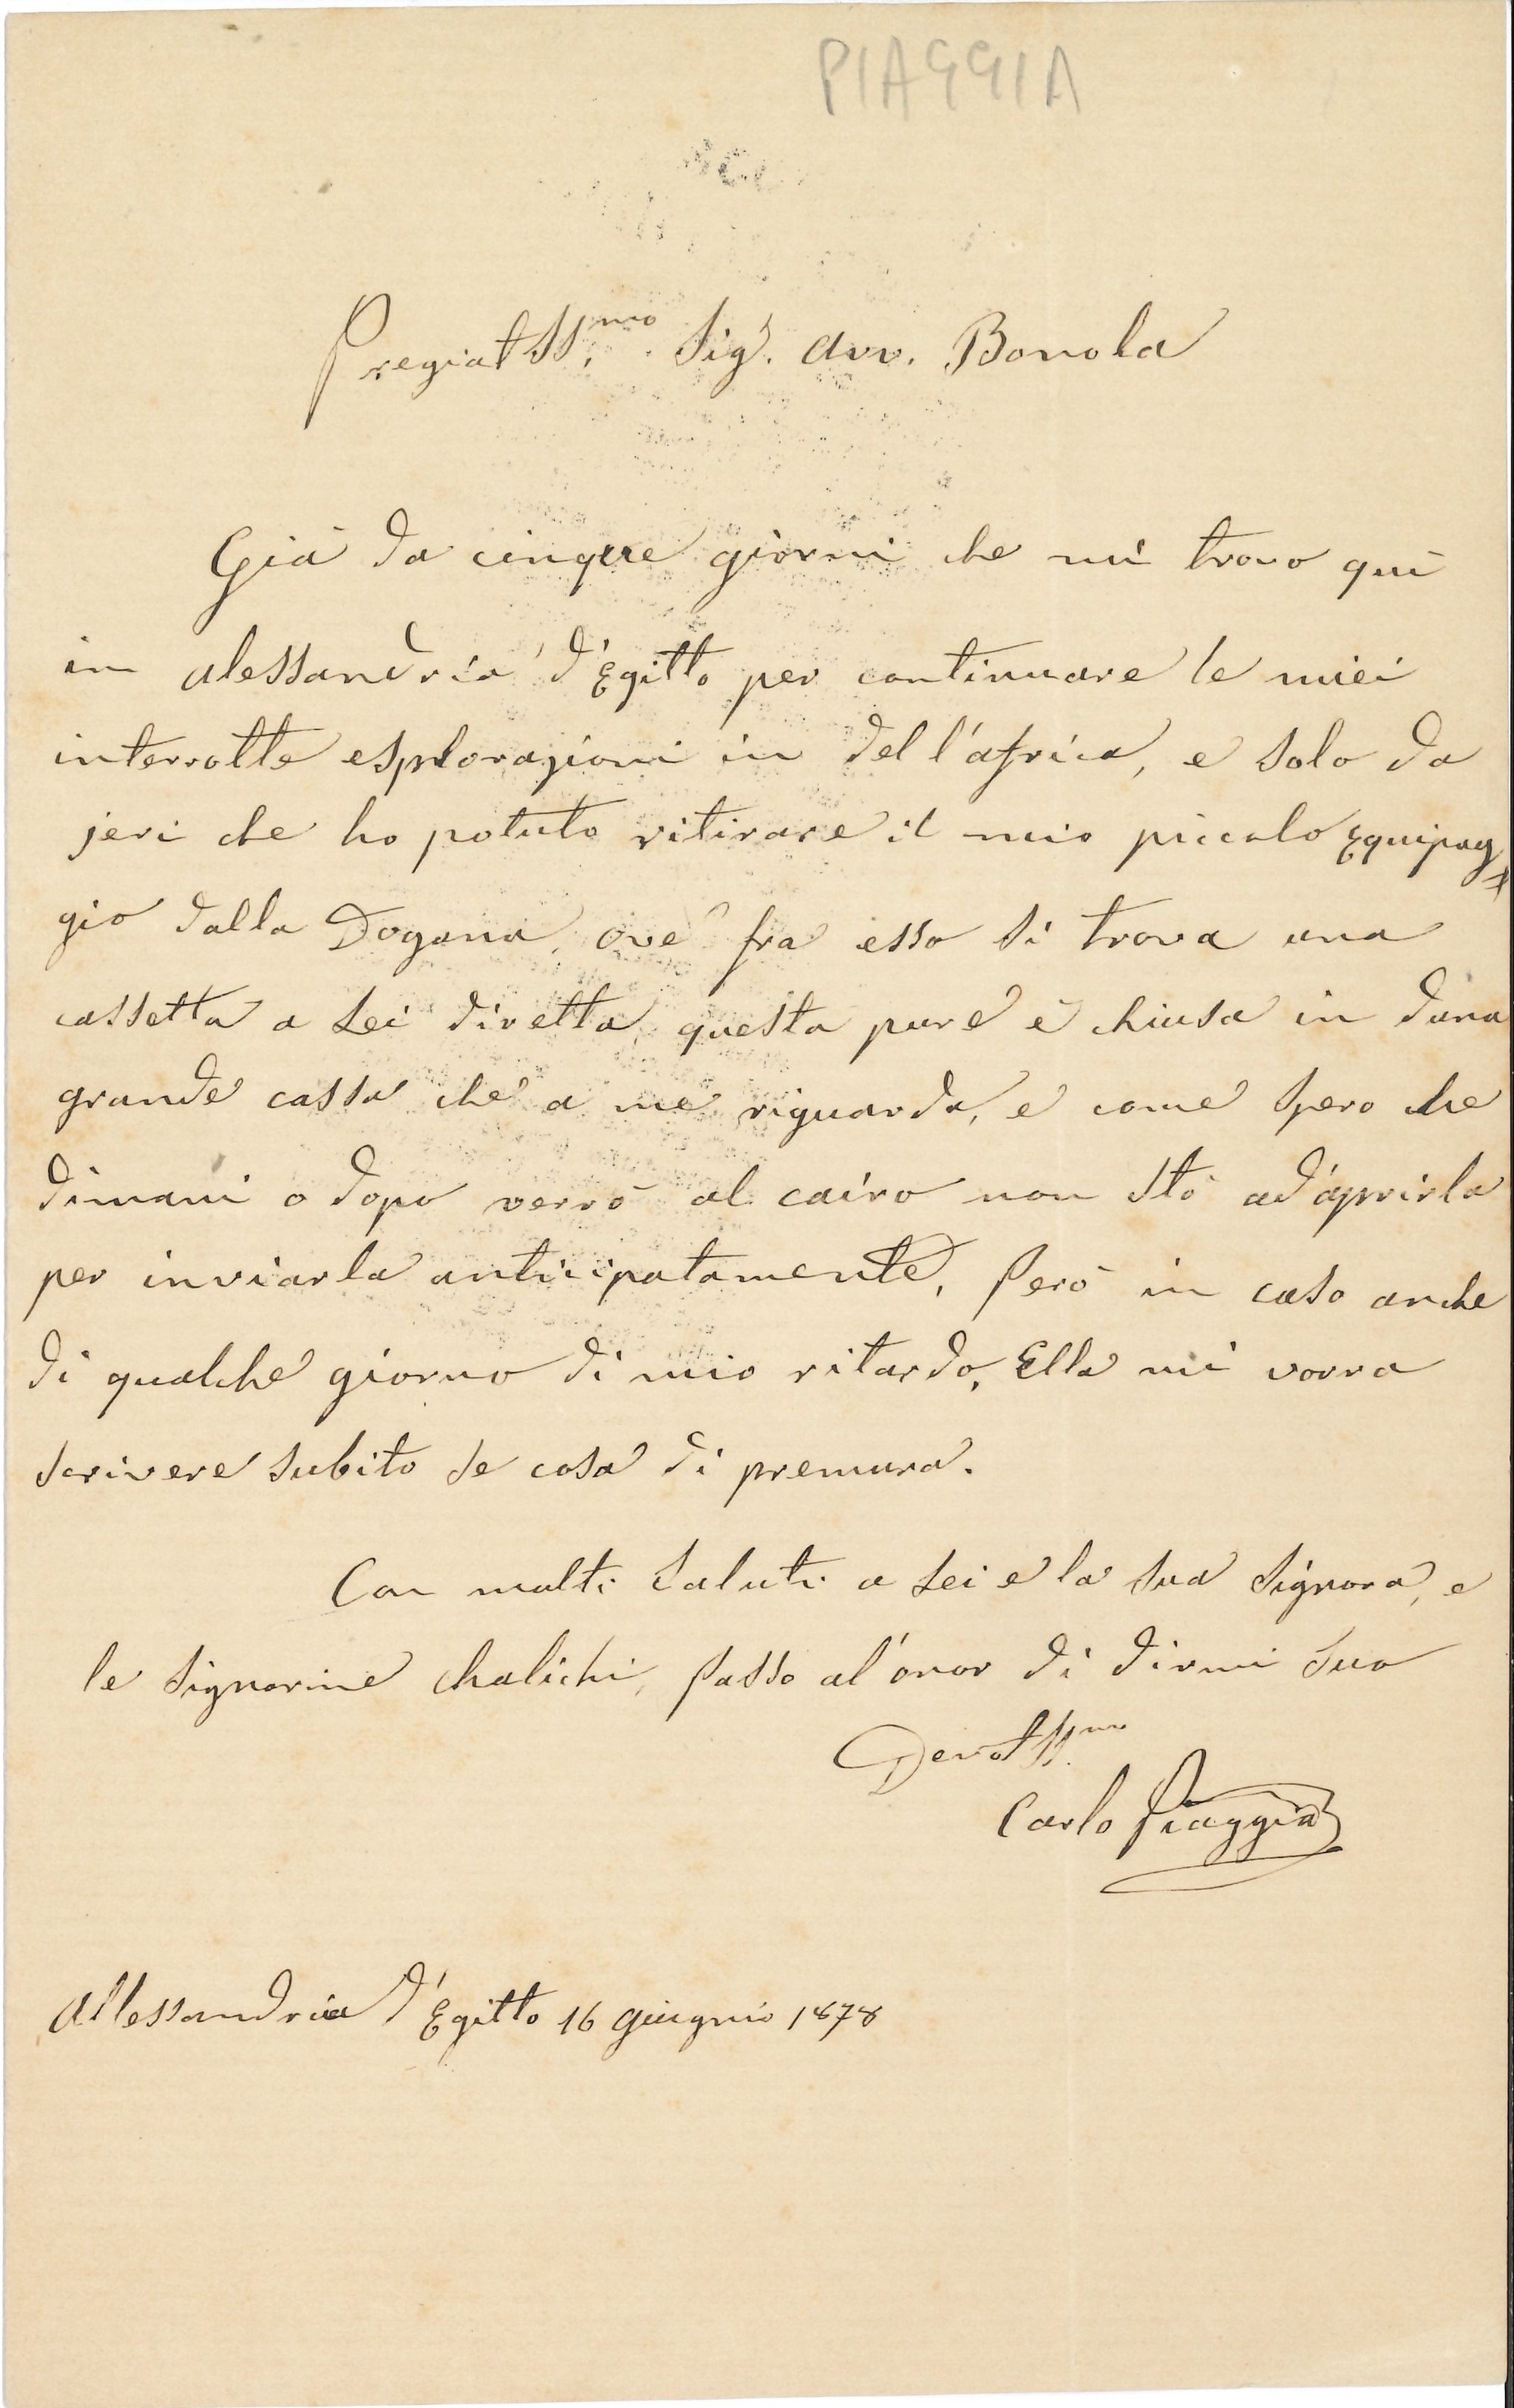 PIAGGIA
Pregiatss.mo Sig.r Avv. Bonola
Già da cinque giorni che mi trovo quì
in Alessandria d'Egitto per continuare le miei
interrotte esplorazioni in dell'africa, e solo da
jeri che ho potuto ritirare il mio piccolo Equipag
gio dalla Dogana, ove fra esso si trova una
cassetta a Lei diretta, questa pure è chiusa in duna
grande cassa che a me riguarda, e come spero che
dimani o dopo verrò al cairo non stò ad'aprirla
per inviarla anticipatamente. Però in caso anche
di qualche giorno di mio ritardo, Ella mi vorra
scrivere subito se cosa di premura.
Con molti saluti a Lei e la sua Signora, e
le Signorine Chalichi, passo al'onor di dirmi Suo
Devotss.mo
Carlo Piaggia
Allessandria d'Egitto 16 giugnio 1878